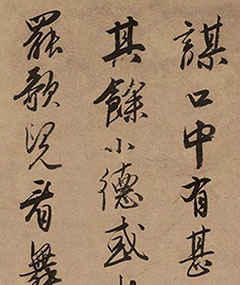 謀口中有甚
其餘小德或
罷歌況看舞